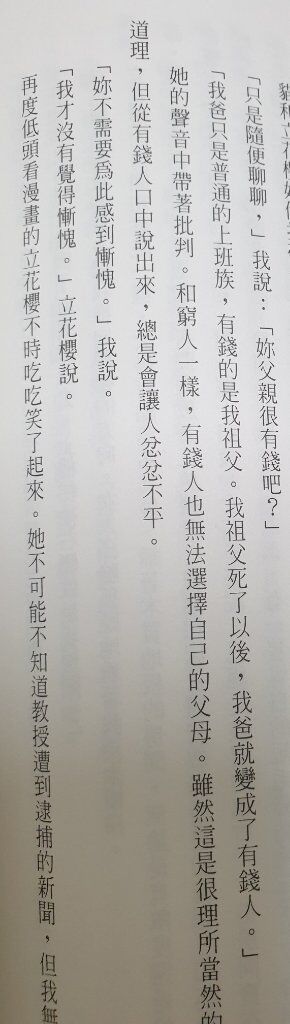 「只是隨便聊聊，」我說：「妳父親很有錢吧？」
「我爸只是普通的上班族，有錢的是我祖父。我祖父死了以後，我爸就變成了有錢人。」
她的聲音中帶著批判。和窮人一樣，有錢人也無法選擇自己的父母。雖然這是很理所當然的
道理，但從有錢人口中說出來，總是會讓人忿忿不平。
「妳不需要爲此感到慚愧。」我說。
「我才沒有覺得慚愧。」立花櫻說。
再度低頭看漫畫的立花櫻不時吃吃笑了起來。她不可能不知道教授遭到逮捕的新聞，但我無